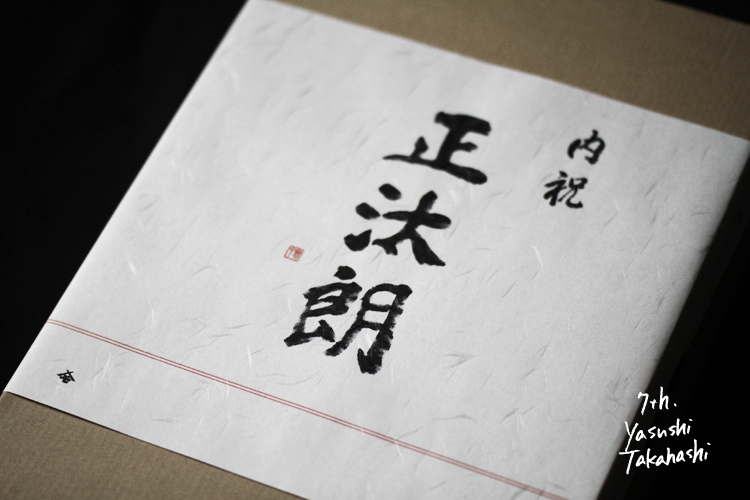 内祝
正汰朗
7th.
Yasushi
Takahashi